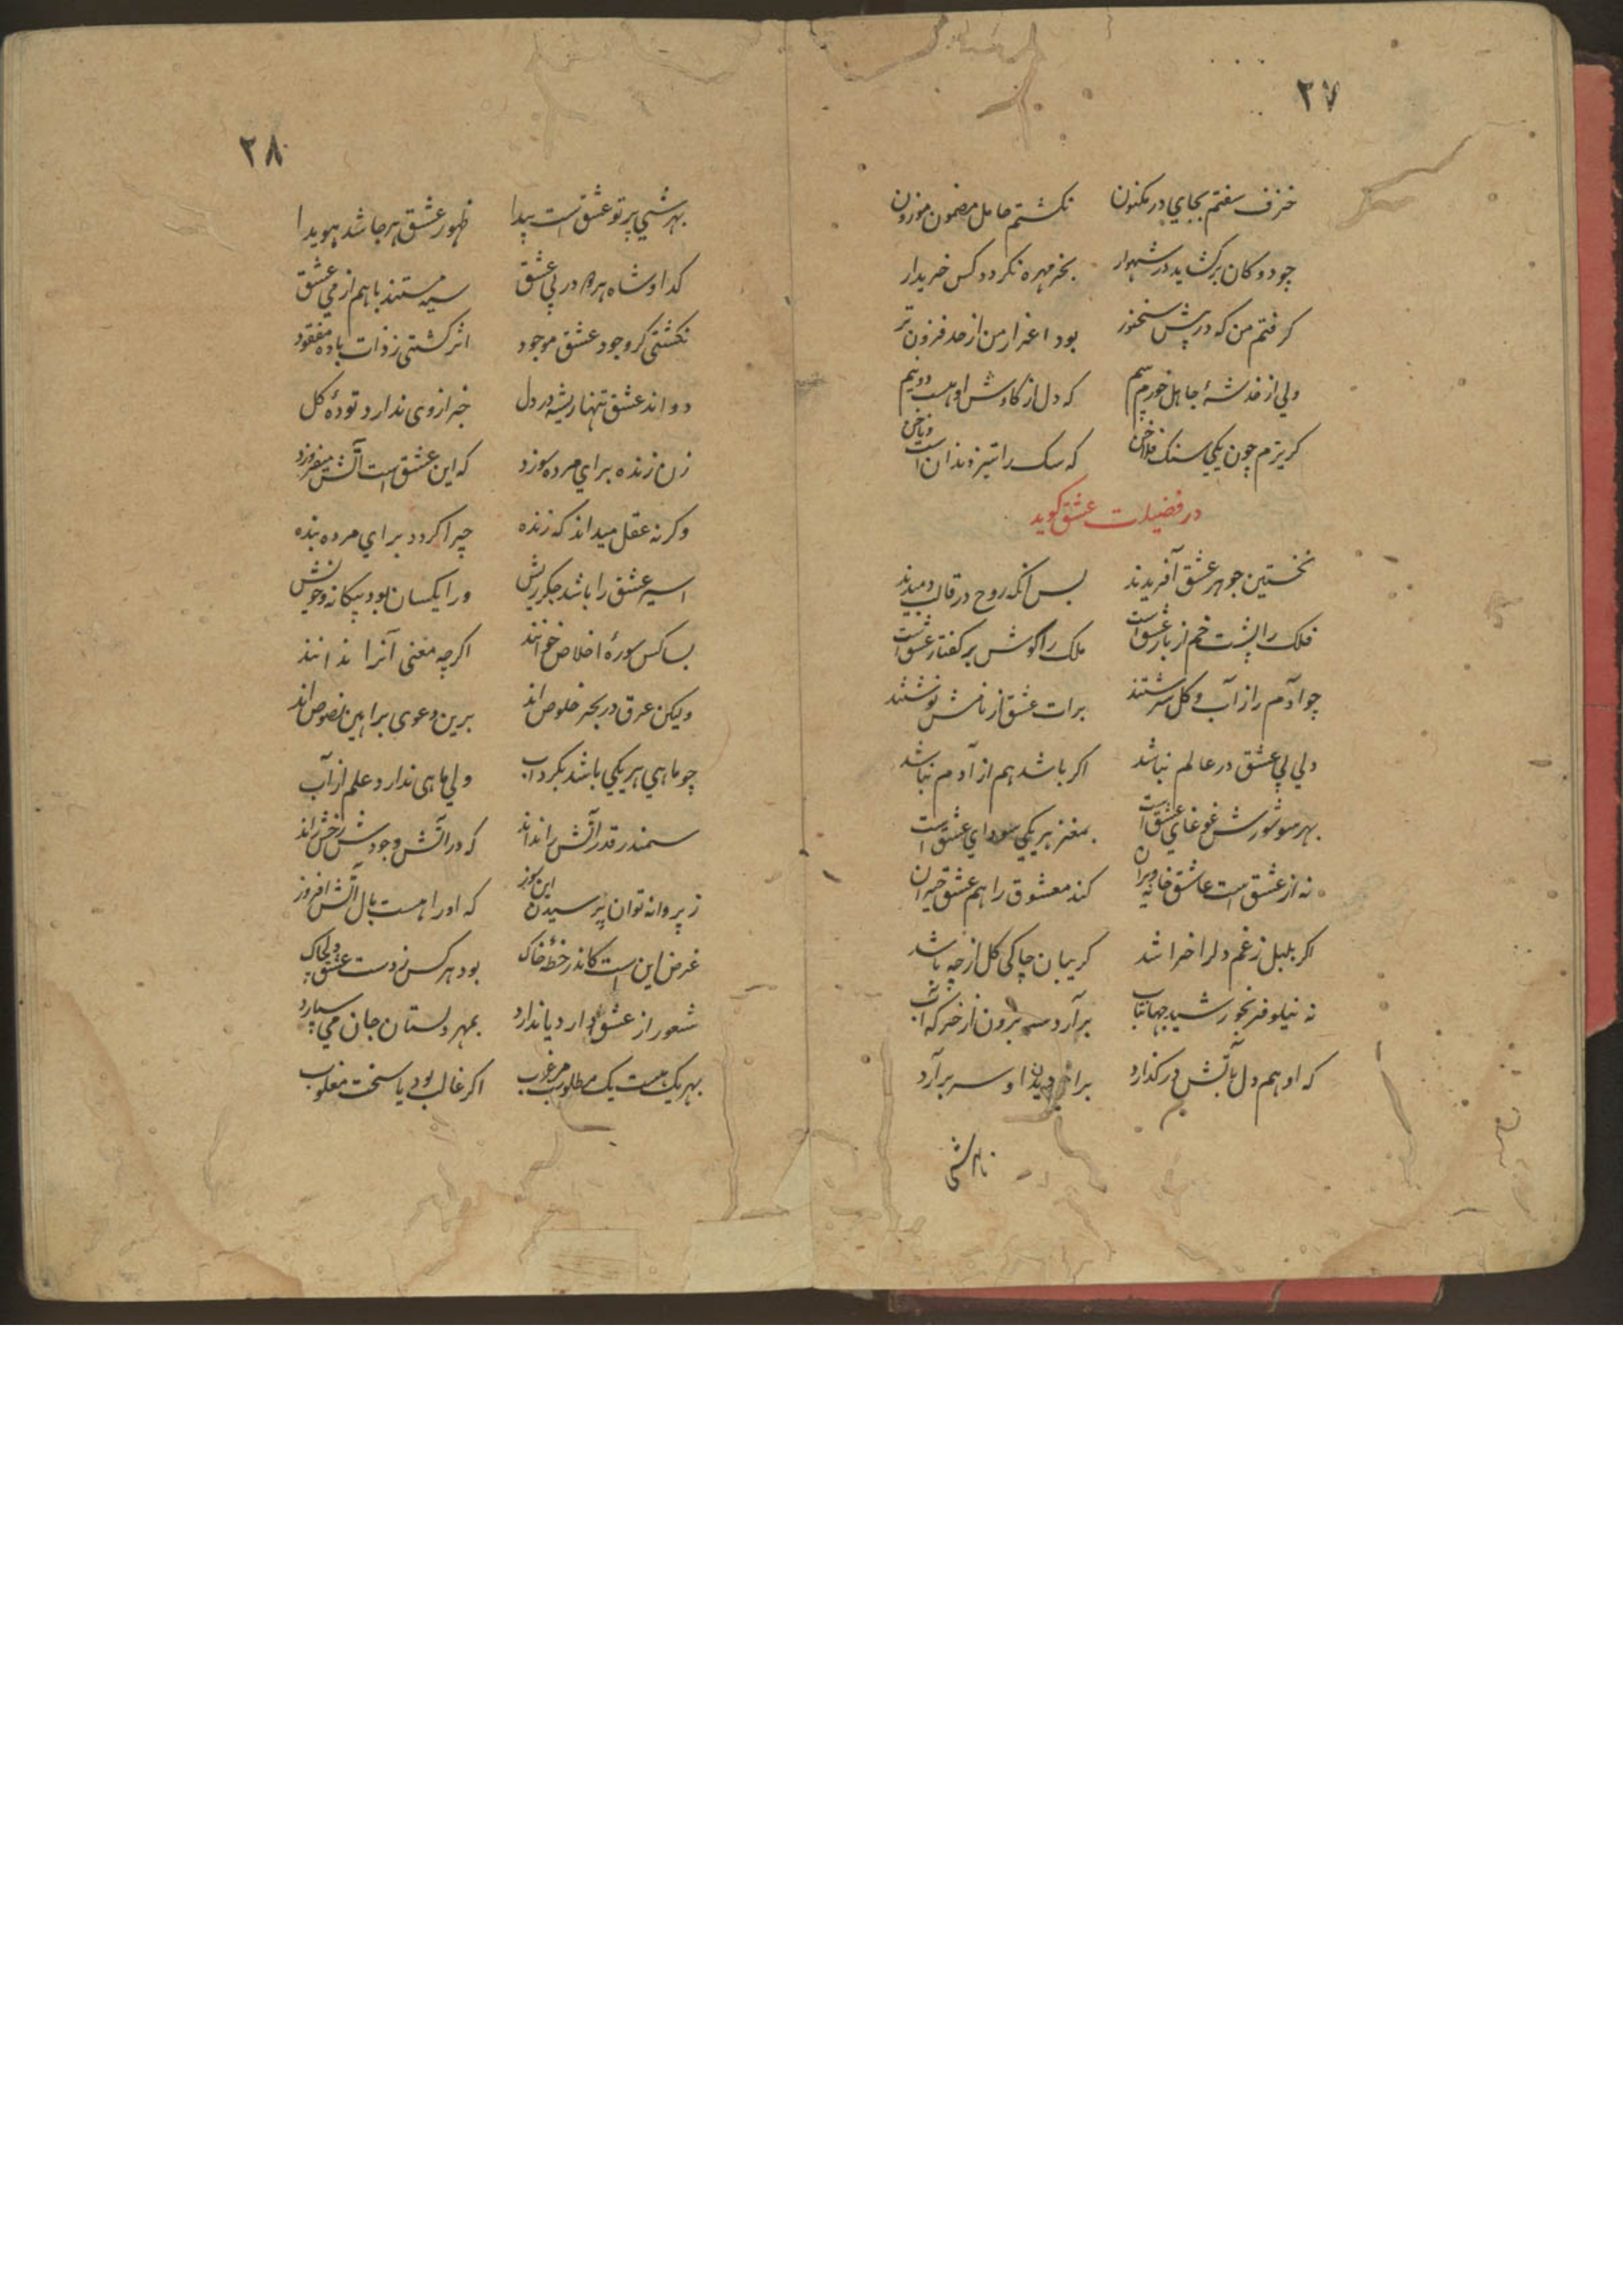 ۲۷
خزف سفتم بجاي در مکنون نکشتم حامل مضمون موزون
چو دوکان برکشاید در شهوار بخر مهره نکردد کس خریدار
کرفتم من که در پیش سخنور بود اعزاز من از حد فزون تر
ولي از خدشهٔ جاهل خورم بیم که دل از کاوش او هست دو نیم
کریزم چون یکي سنک فلاخن که سک را تیز دندان است و ناخن
در فضیلت عشق کوید
نخستین جوهر عشق آفریدند پس آنکه روح در قالب دمیدند
فلک را پشت خم از بار عشق است ملک را کوش بر کفتار عشق است
چو آدم را ز آب و کل سرشتند برات عشق از نامش نوشتند
دلي بي عشق در عالم نباشد اکر باشد هم از آدم نباشد
بهر سو شورش غوغاي عشق است بمغز هر یکي سوداي عشق است
نه از عشق است عاشق خانه ویران کند معشوق را هم عشق حیران
اکر بلبل ز غم دلرا خراشد کریبان چاکی کل از چه باشد
نه نیلوفر بخورشید جهانتاب برآرد سر برون از خرکه آب
که او هم دل بآتش در کذارد براي دیدن او سر برآرد
۲۸
بهر شئ پرتو عشق است پیدا ظهور عشق هر جا شد هویدا
کدا و شاه هر دو در پي عشق سیه مستند باهم از مي عشق
نکشتی کر وجود عشق موجود اثر کشتی ز ذات باده مفقود
دواند عشق تنها ریشه در دل خبر از وی ندارد تودهٔ کل
زن زنده براي مرده سوزد که این عشق است آتش میفروزد
وکرنه عقل میداند که زنده چرا کردد براي مرده بنده
اسیر عشق را باشد جکر ریش ورا یکسان بود بیکانه و خویش
بسا کس سورهٔ اخلاص خوانند اکرچه معنی آنرا ندانند
ولیکن غرق در بحر خلوص اند برین دعوی براهین نصوص اند
چو ماهي هر یکي باشد بکرداب ولي ماهی ندارد علم از آب
سمندر قدر آتش را نداند که در آتش وجودش رخش راند
ز پروانه توان پرسیدن این سوز که او را هست بال آتش افروز
غرض این است کاندر خطهٔ خاک بود هر کس ز دست عشق دلچاک
شعور از عشق دارد یا ندارد بمهر دلستان جان مي سپارد
بهر یک هست یک مطلوب مرغوب اکر غالب بود یا سخت مغلوب